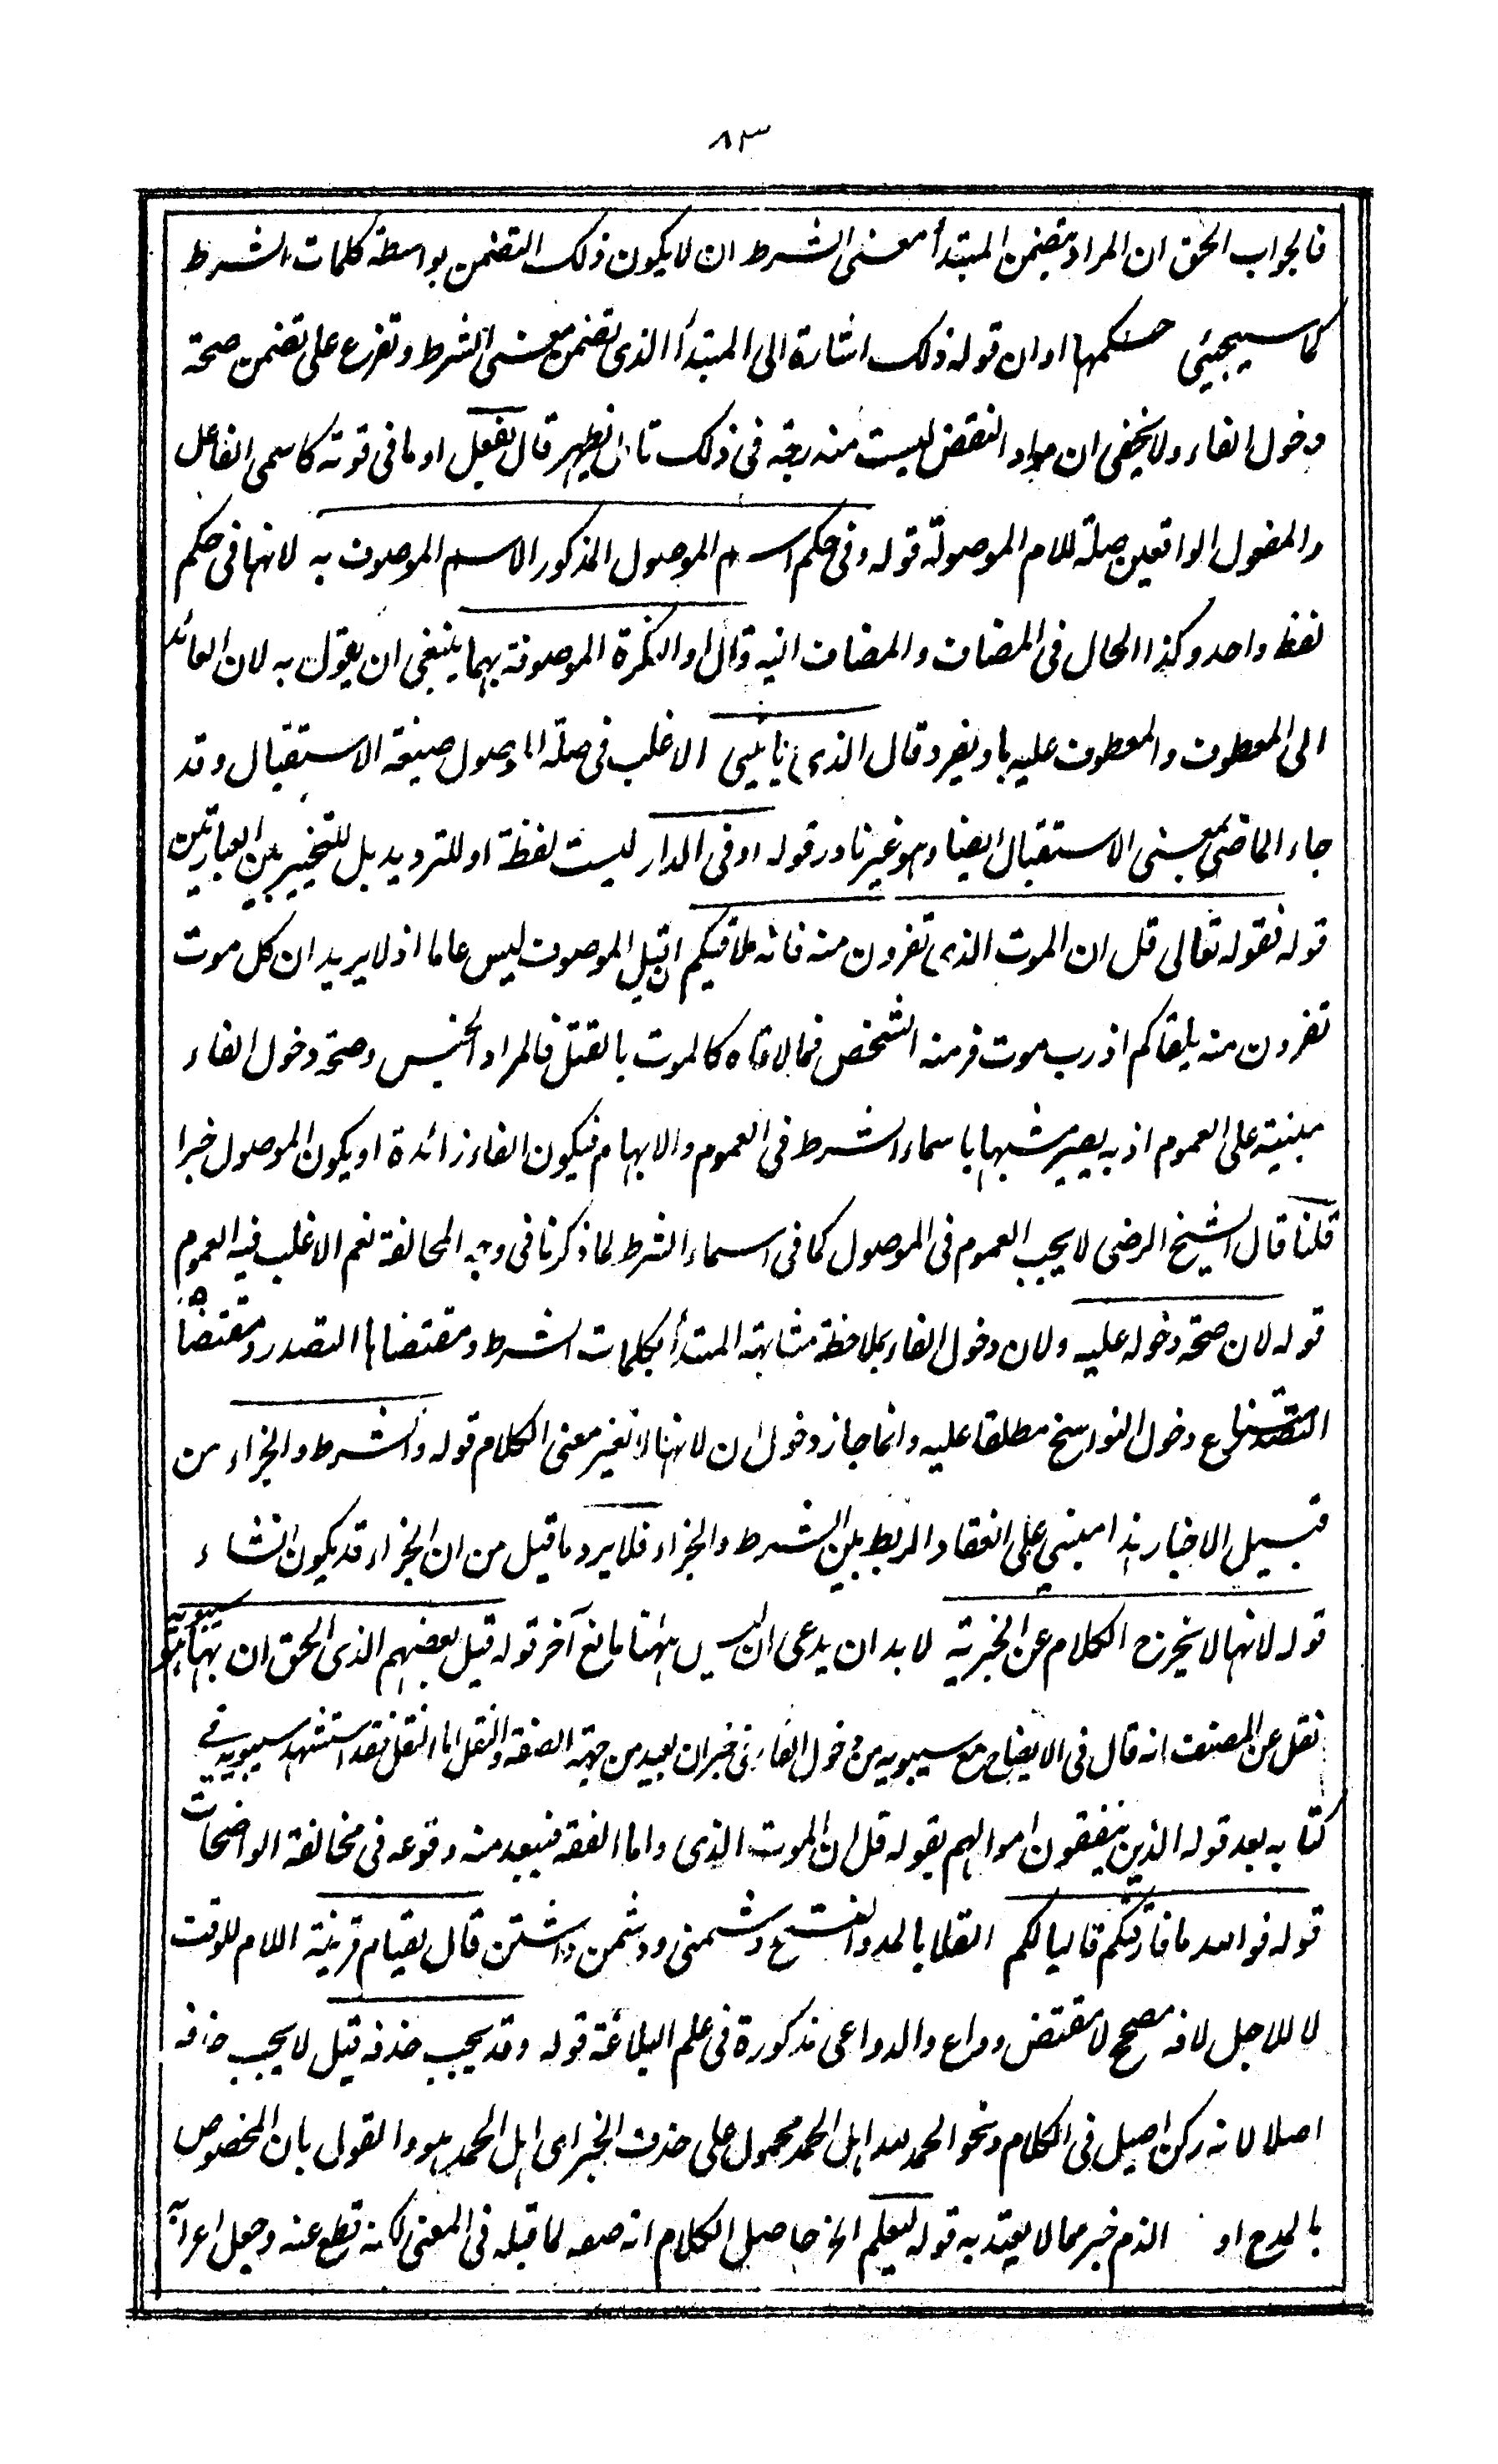 ٨٣
فالجواب الحق ان المراد بتضمن المبتدأ معنى الشرط ان لا يكون ذلك التضمن بواسطة كلمات الشرط
كما سيجيئ حكمها او ان قوله ذلك اشارة الى المبتدأ الذى تضمن معنى الشرط وتفرع على تضمن صحة
دخول الفاء ولا يخفى ان مواد النقض ليست مندرجة فى ذلك قال بفعل او ما فى قوته كاسمى الفاعل
والمفعول الواقعين صلة للام الموصولة قوله وفى حكم اسم الموصول المذكور الاسم الموصوف به لانها فى حكم
لفظ واحد وكذا الحال فى المضاف والمضاف اليه قال او النكرة الموصوفة بهما ينبغى ان يقول به لان العائد
الى المعطوف والمعطوف عليه باو يفرد قال الذى ياتينى الاغلب فى صلة الموصول صيغة الاستقبال وقد
جاء الماضى بمعنى الاستقبال ايضا وهو غير نادر قوله او فى الدار ليست لفظة او للترديد بل للتخيير بين العبارتين
قوله فقوله تعالى قل ان الموت الذى تفرون منه فانه ملاقيكم ان قيل الموصوف ليس عاما اذ لا يريد ان كل موت
تفرون منه يلقاكم اذ رب موت فر منه الشخص فما لاقاه كالموت بالقتل فالمراد الجنس وصحة دخول الفاء
مبنية على العموم اذ به يصير مشبها باسماء الشرط فى العموم والابهام فيكون الفاء زائدة او يكون الموصول خبرا
قلنا قال الشيخ الرضى لا يجب العموم فى الموصول كما فى اسماء الشرط لما ذكرنا فى وجه المخالفة نعم الاغلب فيه العموم
قوله لان صحة دخوله عليه ولان دخول الفاء بملاحظة مشابهة المبتدأ بكلمات الشرط ومقتضاها التصدر ومقتضا
التصدر دخول النواسخ مطلقا عليه وانما جاز دخول ان لانها لا تغير معنى الكلام قوله والشرط والجزاء من
قبيل الاخبار هذا مبنى على انعقاد الربط بين الشرط والجزاء فلا يرد ما قيل من ان الجزاء قد يكون انشاء
قوله لانها لا يخرج الكلام عن الخبرية لا بد ان يدعى ان ليس ههنا مانع آخر قوله قيل بعضهم الذى الحق ان بهما هو سيبويه
نقل عن المصنف انه قال فى الايضاح منع سيبويه من دخول الفاء فى خبر ان بعيد من جهة الفقه والنقل اما النقل فقد استشهد سيبويه فى
كتابه بعد قوله الذين ينفقون اموالهم بقوله قل ان الموت الذى واما الفقه فيبعد منه وقوعه فى مخالفة الواضحات
قوله فوالله ما فارقتكم قاليا لكم القلا بالمد والفتح دشمنى ودشمن داشتن قال لقيام قرينة اللام للوقت
لا للاجل لانه مصحح لا مقتض وداع والدواعى مذكورة فى علم البلاغة قوله وقد يجب حذفه قيل لا يجب حذفه
اصلا لانه ركن اصيل فى الكلام ونحو الحمد لله اهل الحمد محمول على حذف الخبر اى اهل الحمد هو والقول بان المخصوص
بالمدح او الذم خبر مما لا يعتد به قوله ليعلم الخ حاصل الكلام انه صفه لما قبله فى المعنى لكنه قطع عنه وجعل اعرابه